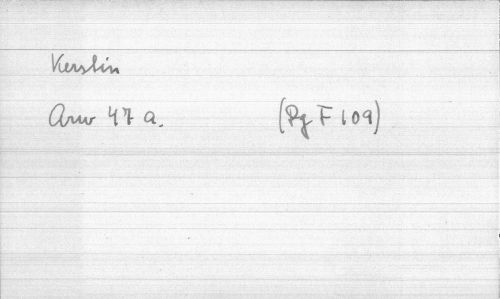 Kerstin
Arw 47 a. (Pg F 109)